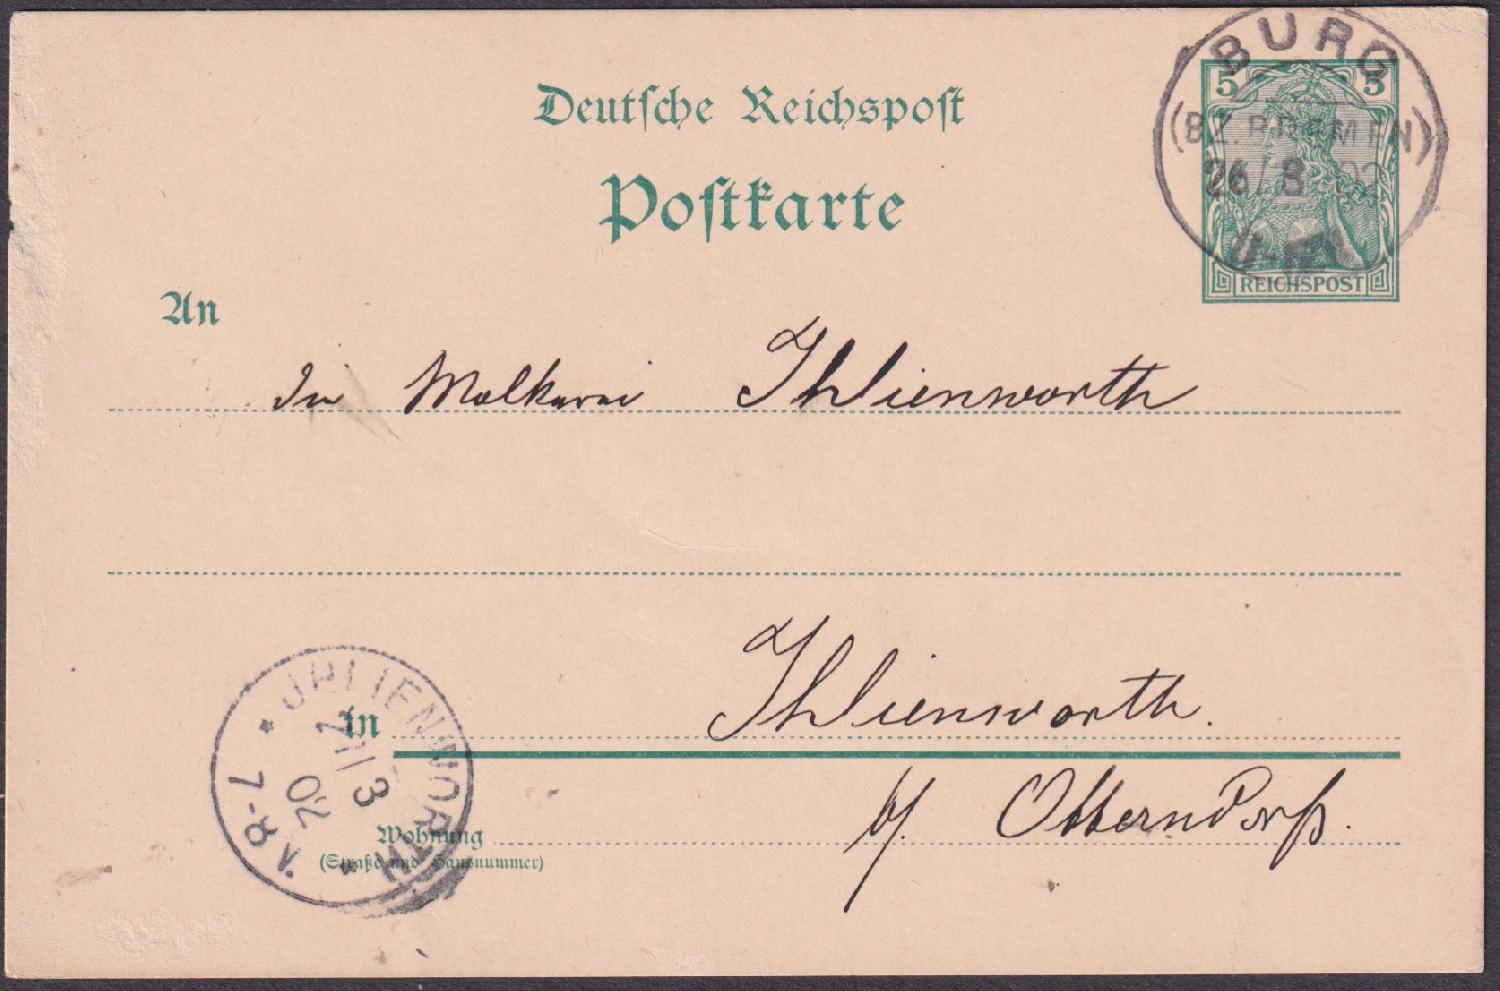 Deutsche Reichspost
Postkarte
BURG
(BZ. BREMEN)
26/3 02
5 5
REICHSPOST
An
Die Molkerei Ihlienworth
in Ihlienworth.
b/. Otterndorf.
Wohnung
(Straße und Hausnummer)
* JHLIENWORTH *
27/3
02
7-8 V